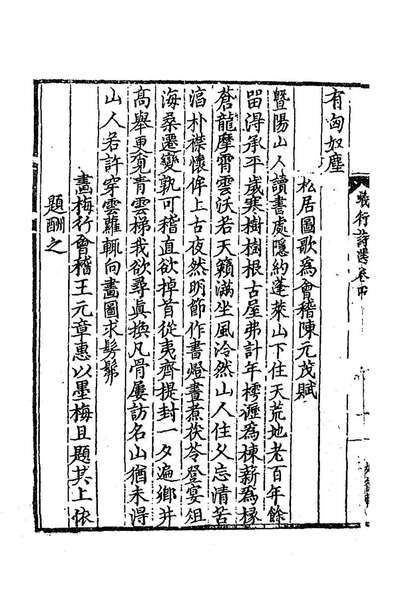 有匈奴塵
松居圖歌為會稽陳元茂賦
暨陽山人讀書處隱約蓬萊山下住天荒地老百年餘
留得承平歲寒樹樹根古屋弗計年樗瀝為棟薪為椽
蒼龍摩霄雲沃若天籟滿坐風泠然山人住久忘清苦
滔朴襟懷侔上古夜然明節作書燈晝煮茯苓登宴俎
海桑遷變孰可稽直欲掉首從夷齊提封一夕遍鄉井
高舉更覓青雲梯我欲尋真換凡骨屢訪名山猶未得
山人若許穿雲蘿輒向畫圖求髣髴
畫梅行會稽王元章惠以墨梅且題其上依
題酬之
行詩